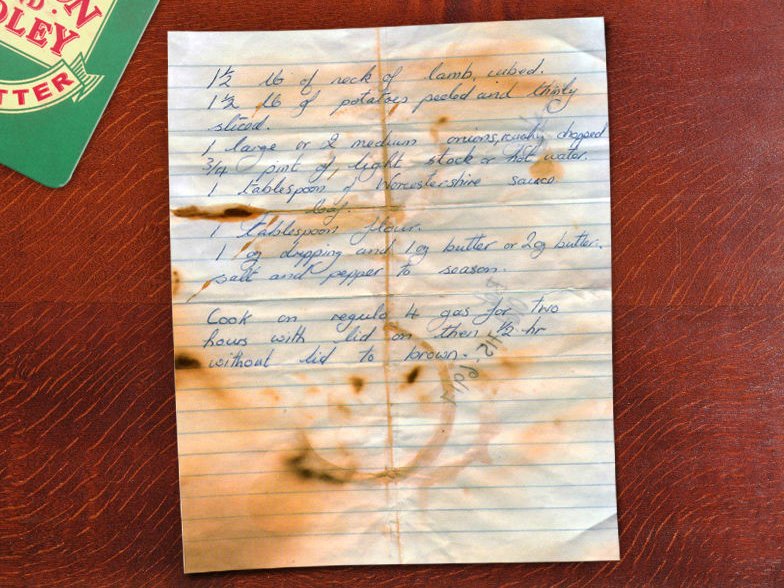 ON
D.
DLEY
TTER
1½ lb of neck of lamb, cubed.
1½ lb of potatoes peeled and thinly
sliced.
1 large or 2 medium onions, roughly chopped
3/4 pint of, light stock or hot water.
1 tablespoon of Worcestershire sauce
leaf.
1 tablespoon flour.
1 oz dripping and 1 oz butter or 2 oz butter.
salt and pepper to season.
Cook on regulo 4 gas for two
hours with lid on then ½ hr
without lid to brown.